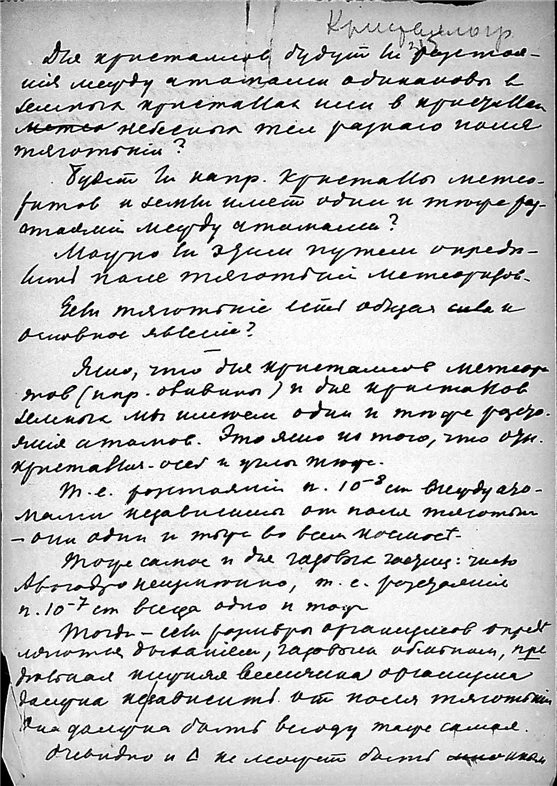 Кристаллогр
Для кристаллов будут ли расстоя-
ния между атомами одинаковы в
земных кристаллах или в кристаллах
небесных тел разнаго поля
тяготения?
Будет ли напр. кристаллы метео-
ритов и земли имеет одни и тоже рас-
стояния между атомами?
Можно ли этим путем опреде-
лить поле тяготений метеоритов.
Если тяготение есть общая сила и
основное явление?
Ясно, что для кристаллов метеори-
тов (напр. оливины) и для кристаллов
земных мы имеем одни и тоже расстоя-
яния атомов. Это ясно из того, что один.
кристаллич. осей и углы тоже.
Т.е. расстояний n. 10⁻⁸ cm между ато-
мами независимы от поля тяготения
– они одни и тоже во всем космосе.
Тоже самое и для газовых частиц: число
Авогадро неизменно, т.е. расстояния
n. 10⁻⁷ cm всегда одно и тоже
Тогда – если размеры организмов опреде-
ляются дыханием, газовым обменом, пре-
дельная нижняя величина организма
должна независить от поля тяготения
она должна быть всюду тоже самая.
Очевидно и Δ не может быть иною